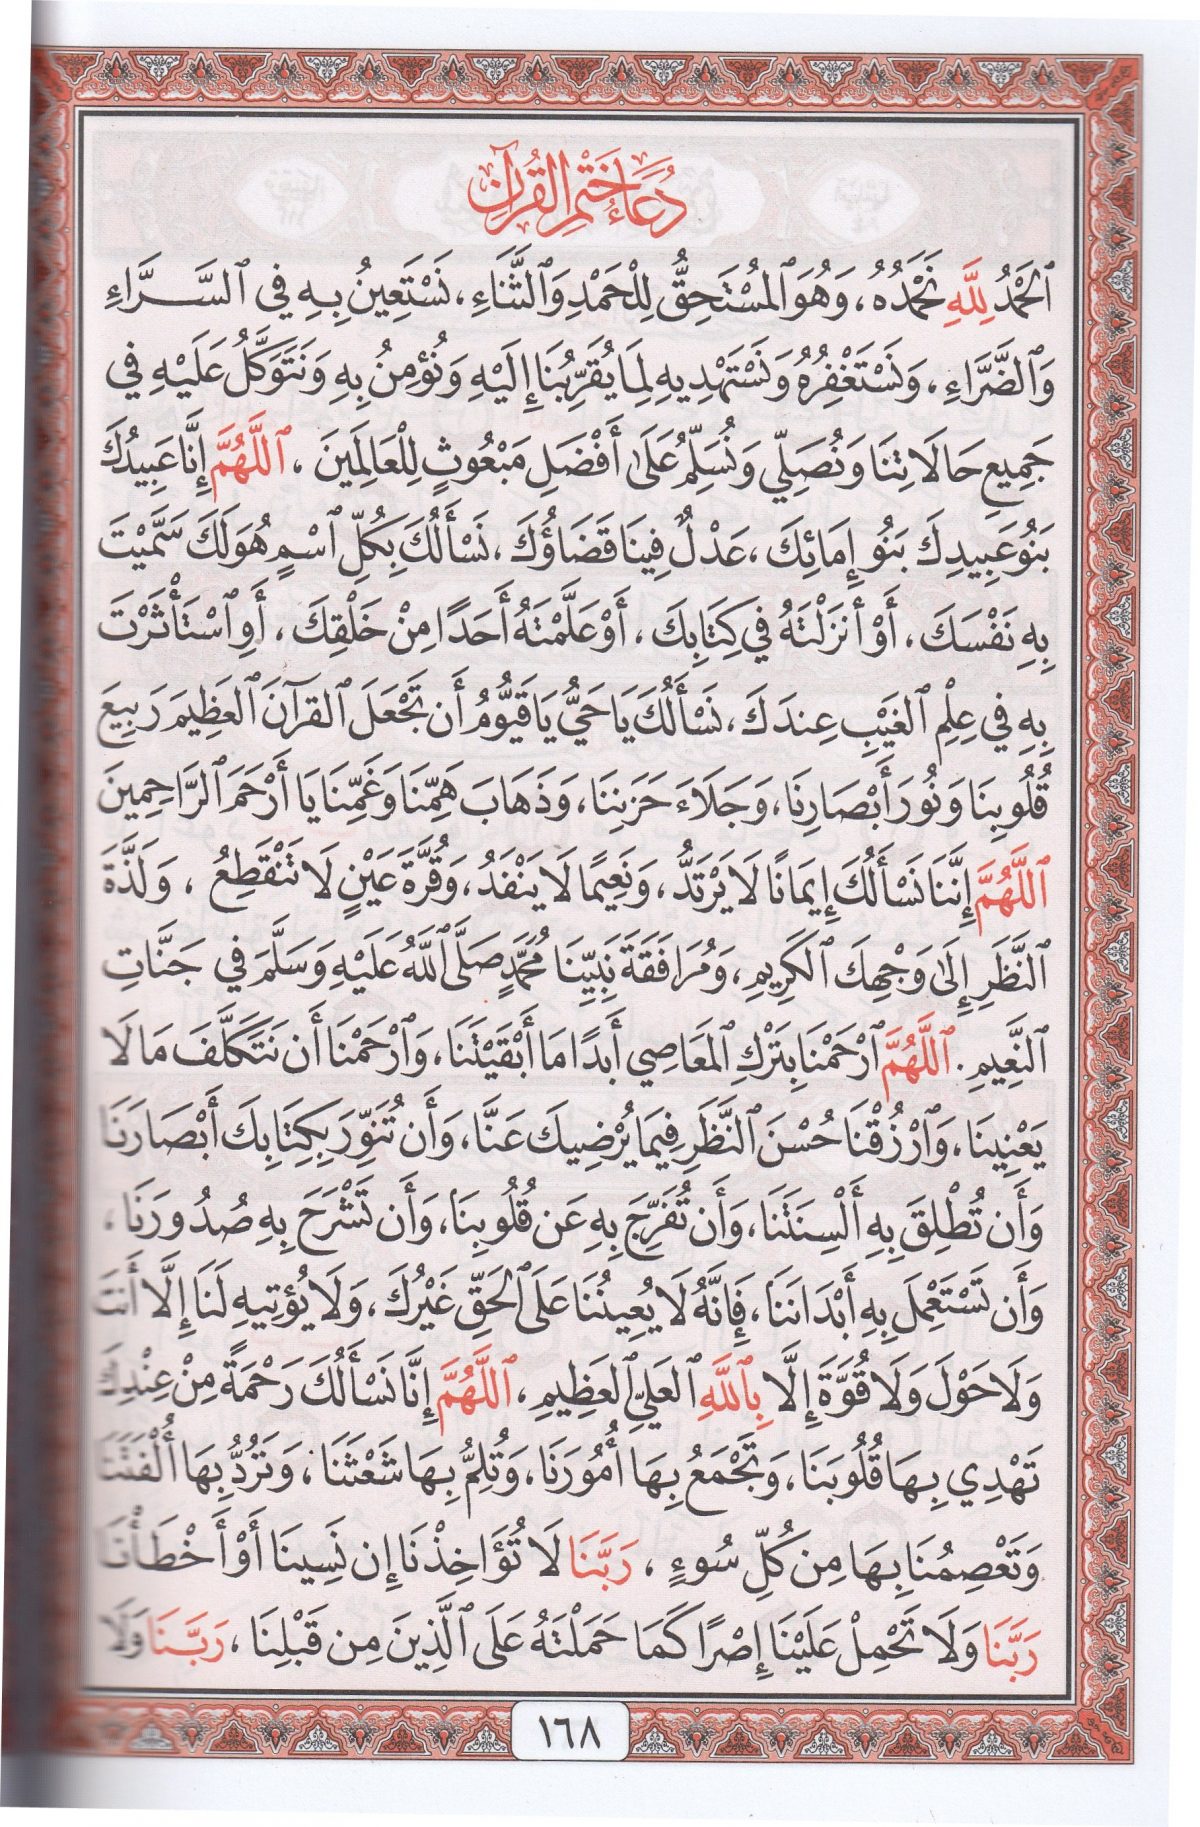 دُعَاءُ خَتْمِ القُرْآنِ
ٱلحَمْدُ لِلَّهِ نَحْمَدُهُ، وَهُوَ ٱلمُسْتَحِقُّ لِلْحَمْدِ وَٱلثَّنَاءِ، نَسْتَعِينُ بِهِ فِي ٱلسَّرَّاءِ
وَٱلضَّرَّاءِ، وَنَسْتَغْفِرُهُ وَنَسْتَهْدِيهِ لِمَا يُقَرِّبُنَا إِلَيْهِ وَنُؤمِنُ بِهِ وَنَتَوَكَّلُ عَلَيْهِ فِي
جَمِيعِ حَالَاتِنَا وَنُصَلِّي وَنُسَلِّمُ عَلَى أَفْضَلِ مَبْعُوثٍ لِلْعَالَمِينَ، ٱللَّهُمَّ إِنَّا عَبِيدُكَ
بَنُو عَبِيدِكَ بَنُو إِمَائِكَ، عَدْلٌ فِينَا قَضَاؤُكَ، نَسْأَلُكَ بِكُلِّ ٱسْمٍ هُوَ لَكَ سَمَّيْتَ
بِهِ نَفْسَكَ، أَوْ أَنزَلْتَهُ فِي كِتَابِكَ، أَوْ عَلَّمْتَهُ أَحَدًا مِنْ خَلْقِكَ، أَوِ ٱسْتَأْثَرْتَ
بِهِ فِي عِلْمِ ٱلغَيْبِ عِندَكَ، نَسْأَلُكَ يَا حَيُّ يَا قَيُّومُ أَن تَجْعَلَ ٱلقُرآنَ ٱلعَظِيمَ رَبِيعَ
قُلُوبِنَا وَنُورَ أَبْصَارِنَا، وَجَلَاءَ حَزَنِنَا، وَذَهَابَ هَمِّنَا وَغَمِّنَا يَا أَرْحَمَ ٱلرَّاحِمِينَ
ٱللَّهُمَّ إِنَّنَا نَسْأَلُكَ إِيمَانًا لَا يَرْتَدُّ، وَنَعِيمًا لَا يَنْفَدُ، وَقُرَّةَ عَيْنٍ لَا تَنْقَطِعُ، وَلَذَّةَ
ٱلنَّظَرِ إِلَى وَجْهِكَ ٱلكَرِيمِ، وَمُرَافَقَةَ نَبِيِّنَا مُحَمَّدٍ صَلَّى ٱللَّهُ عَلَيْهِ وَسَلَّمَ فِي جَنَّاتِ
ٱلنَّعِيمِ. ٱللَّهُمَّ ٱرْحَمْنَا بِتَرْكِ ٱلمَعَاصِي أَبَدًا مَا أَبْقَيْتَنَا، وَٱرْحَمْنَا أَن نَتَكَلَّفَ مَا لَا
يَعْنِينَا، وَٱرْزُقْنَا حُسْنَ ٱلنَّظَرِ فِيمَا يُرْضِيكَ عَنَّا، وَأَن تُنَوِّرَ بِكِتَابِكَ أَبْصَارَنَا
وَأَن تُطْلِقَ بِهِ أَلْسِنَتَنَا، وَأَن تُفَرِّجَ بِهِ عَن قُلُوبِنَا، وَأَن تَشْرَحَ بِهِ صُدُورَنَا،
وَأَن تَسْتَعْمِلَ بِهِ أَبْدَانَنَا، فَإِنَّهُ لَا يُعِينُنَا عَلَى ٱلحَقِّ غَيْرُكَ، وَلَا يُؤتِيهِ لَنَا إِلَّا أَنتَ
وَلَا حَوْلَ وَلَا قُوَّةَ إِلَّا بِٱللَّهِ ٱلعَلِيِّ ٱلعَظِيمِ، ٱللَّهُمَّ إِنَّا نَسْأَلُكَ رَحْمَةً مِنْ عِنْدِكَ
تَهْدِي بِهَا قُلُوبَنَا، وَتَجْمَعُ بِهَا أُمُورَنَا، وَتُلِمُّ بِهَا شَعْثَنَا، وَتَرُدُّ بِهَا أُلْفَتَنَا
وَتَعْصِمُنَا بِهَا مِن كُلِّ سُوءٍ، رَبَّنَا لَا تُؤَاخِذْنَا إِن نَسِينَا أَوْ أَخْطَأْنَا
رَبَّنَا وَلَا تَحْمِلْ عَلَيْنَا إِصْرًا كَمَا حَمَلْتَهُ عَلَى ٱلَّذِينَ مِن قَبْلِنَا، رَبَّنَا وَلَا
١٦٨